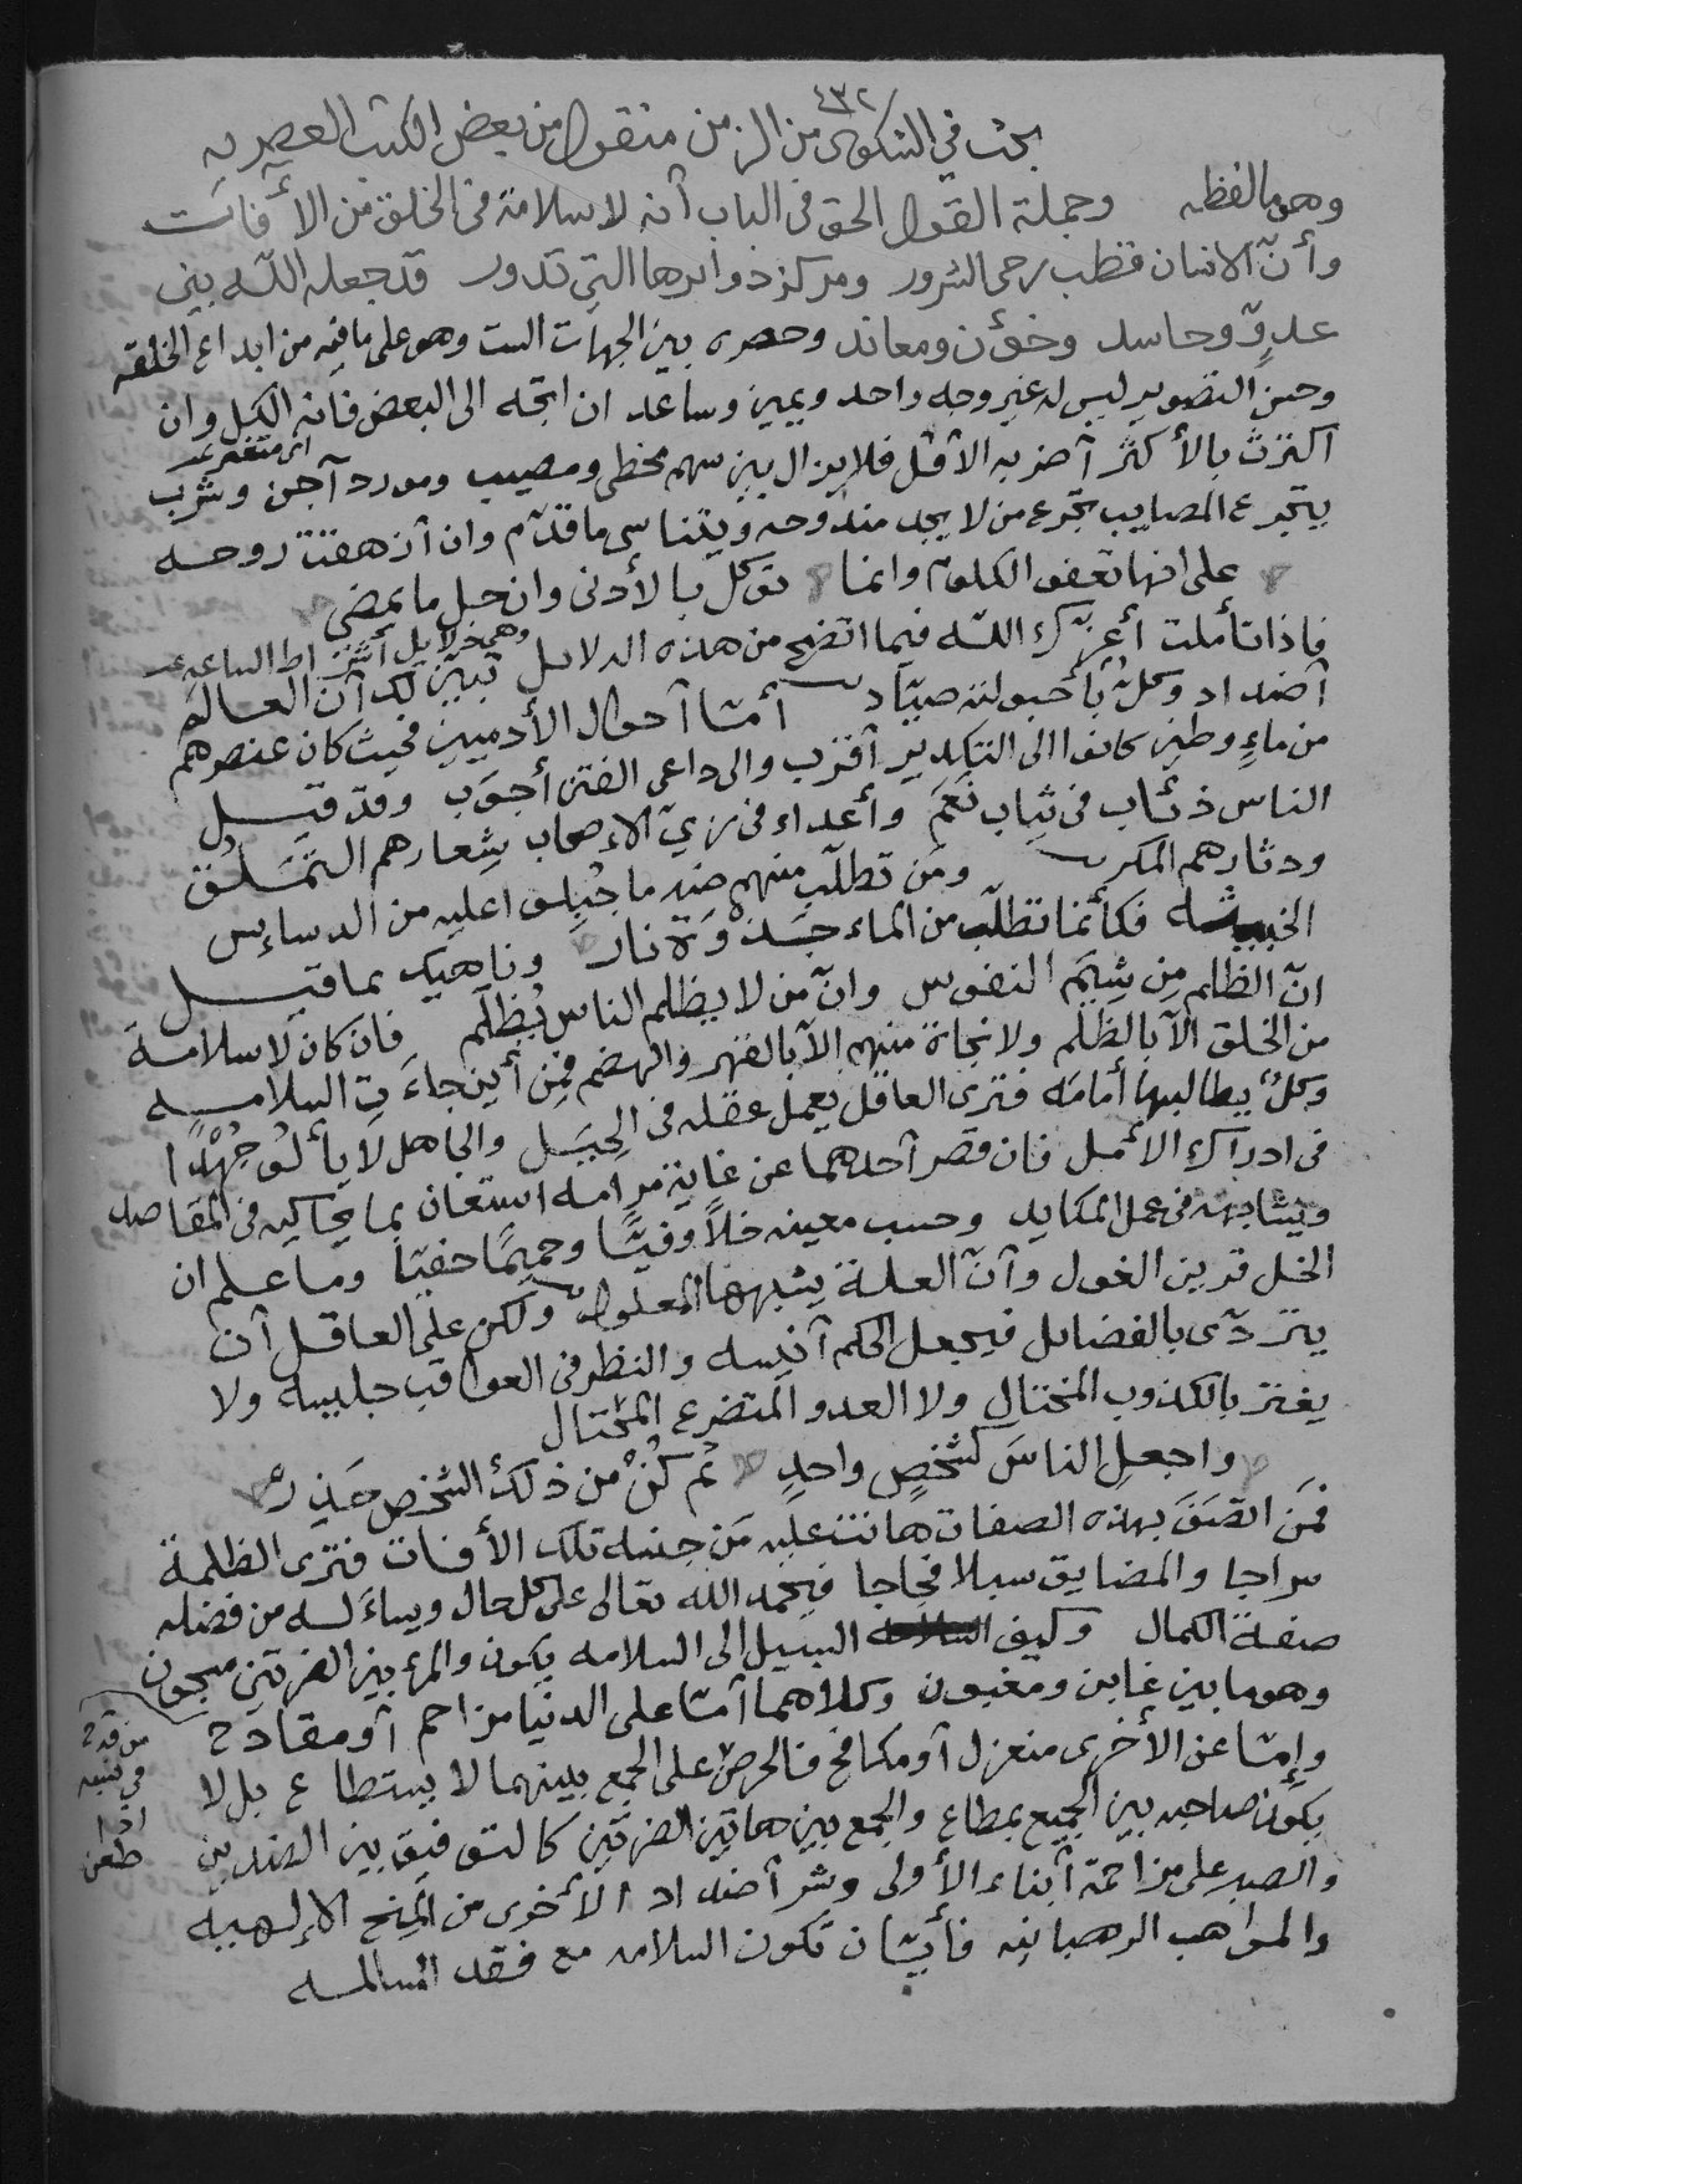 ٤٣٢
بحث في الشكوى من الزمن منقول من بعض الكتب العصريه
وهو ما لفظه وجملة القول الحق في الباب أنه لا سلامة في الخلق من الأفات
وأنّ الانسان قطب رحى الشرور ومركز دوائرها التي تدور قد جعله اللّه بين
عدوٍّ وحاسد وخؤن ومعاند وحصره بين الجهات الست وهو على ما فيه من ابداع الخلقه
وحسن التصوير ليس له غير وجه واحد ويمين وساعد ان اتجه الى البعض فاته الكل وان
اكترث بالأكثر أضر به الأقل فلا يزال بين سهم مخطى ومصيب ومورد آجن وشرب
اى متغير
يتجرع المصايب تجرع من لا يجد مندوحه ويتناسى ما قدّم وان أزهقت روحه
على انها تعفو الكلوم وانما توكل بالأدنى وان جل ما يمضي
فاذا تأملت أعزّك اللّه فيما اتضح من هذه الدلايل تبيّن لك أن العالم
وهي دلايل أشراط الساعه
أضداد وكلٌ بأحبولته صيّاد أمّا أحوال الأدميين فحيث كان عنصرهم
من ماءٍ وطين كانوا الى التكدير أقرب والى داعى الفتن أجوَب وقد قيل
الناس ذئاب في ثياب نَعَم وأعداء في زيّ الاصحاب شعارهم التمَلّق
ودثارهم المكر ومَن تطلّب منهم ضد ما جُبِلوا عليه من الدساءس
الخبيثه فكأنما تطلّب من الماء جَذْوَة نار وناهيك بما قيل
انّ الظلم مِن شِيَم النفوس وانّ من لا يظلم الناس يُظلَم فان كان لا سلامةَ
من الخلق الّا بالظلم ولا نجاة منهم الّا بالقهر والهضم فمِن أين جاءَت السلامه
وكلٌ يطالبها أمامَه فترى العاقل يعمل عقله في الحِيَل والجاهل لا يألو جُهْدًا
في ادراك الأمل فان قصر أحدهما عن غاية مرامه استعان بما يحاكيه في المقاصد
ويشابهه في عمل المكايد وحسب معينه خلاًّ وفيًّا وحميمًا حفيّا وما علم ان
الخل قرين الغول وأنّ العلة يشبهها المعلول ولكن على العاقل أن
يتردّى بالفضايل فيجعل الحكم أنيسه والنظر في العواقب جليسه ولا
يغتر بالكذوب المختال ولا العدو المتضرع المحتال
واجعلِ الناسَ كشخصٍ واحدِ ثم كُنْ من ذلك الشخص حَذِرْ
فمَن اتصَفَ بهذه الصفات هانت عليه مَن جنسه تلك الأفات فترى الظلمة
سراجا والمضايق سبلا فجاجا فيحمد الله تعالى على كل حال ويساءَله من فضله
صفة الكمال وكيف السبيل الى السلامه يكون والمرء بين الضرتين مسجون
وهو ما بين غابن ومغبون وكلاهما أمّا على الدنيا مزاحم أو مقادح
من قدح في نسبه اذا طعن
وإمّا عن الأخرى منعزل أو مكافح فالحرص على الجمع بينهما لا يستطاع بل لا
يكون صاحبه بين الجميع بمطاع والجمع بين هاتين الضرتين كالتوفيق بين الضدين
والصبر على مزاحمة أبناء الأولى وشر أضداد الأخرى من المِنح الإلهيه
والمواهب الرهبانيه فأيّان تكون السلامه مع فقد المسالمه